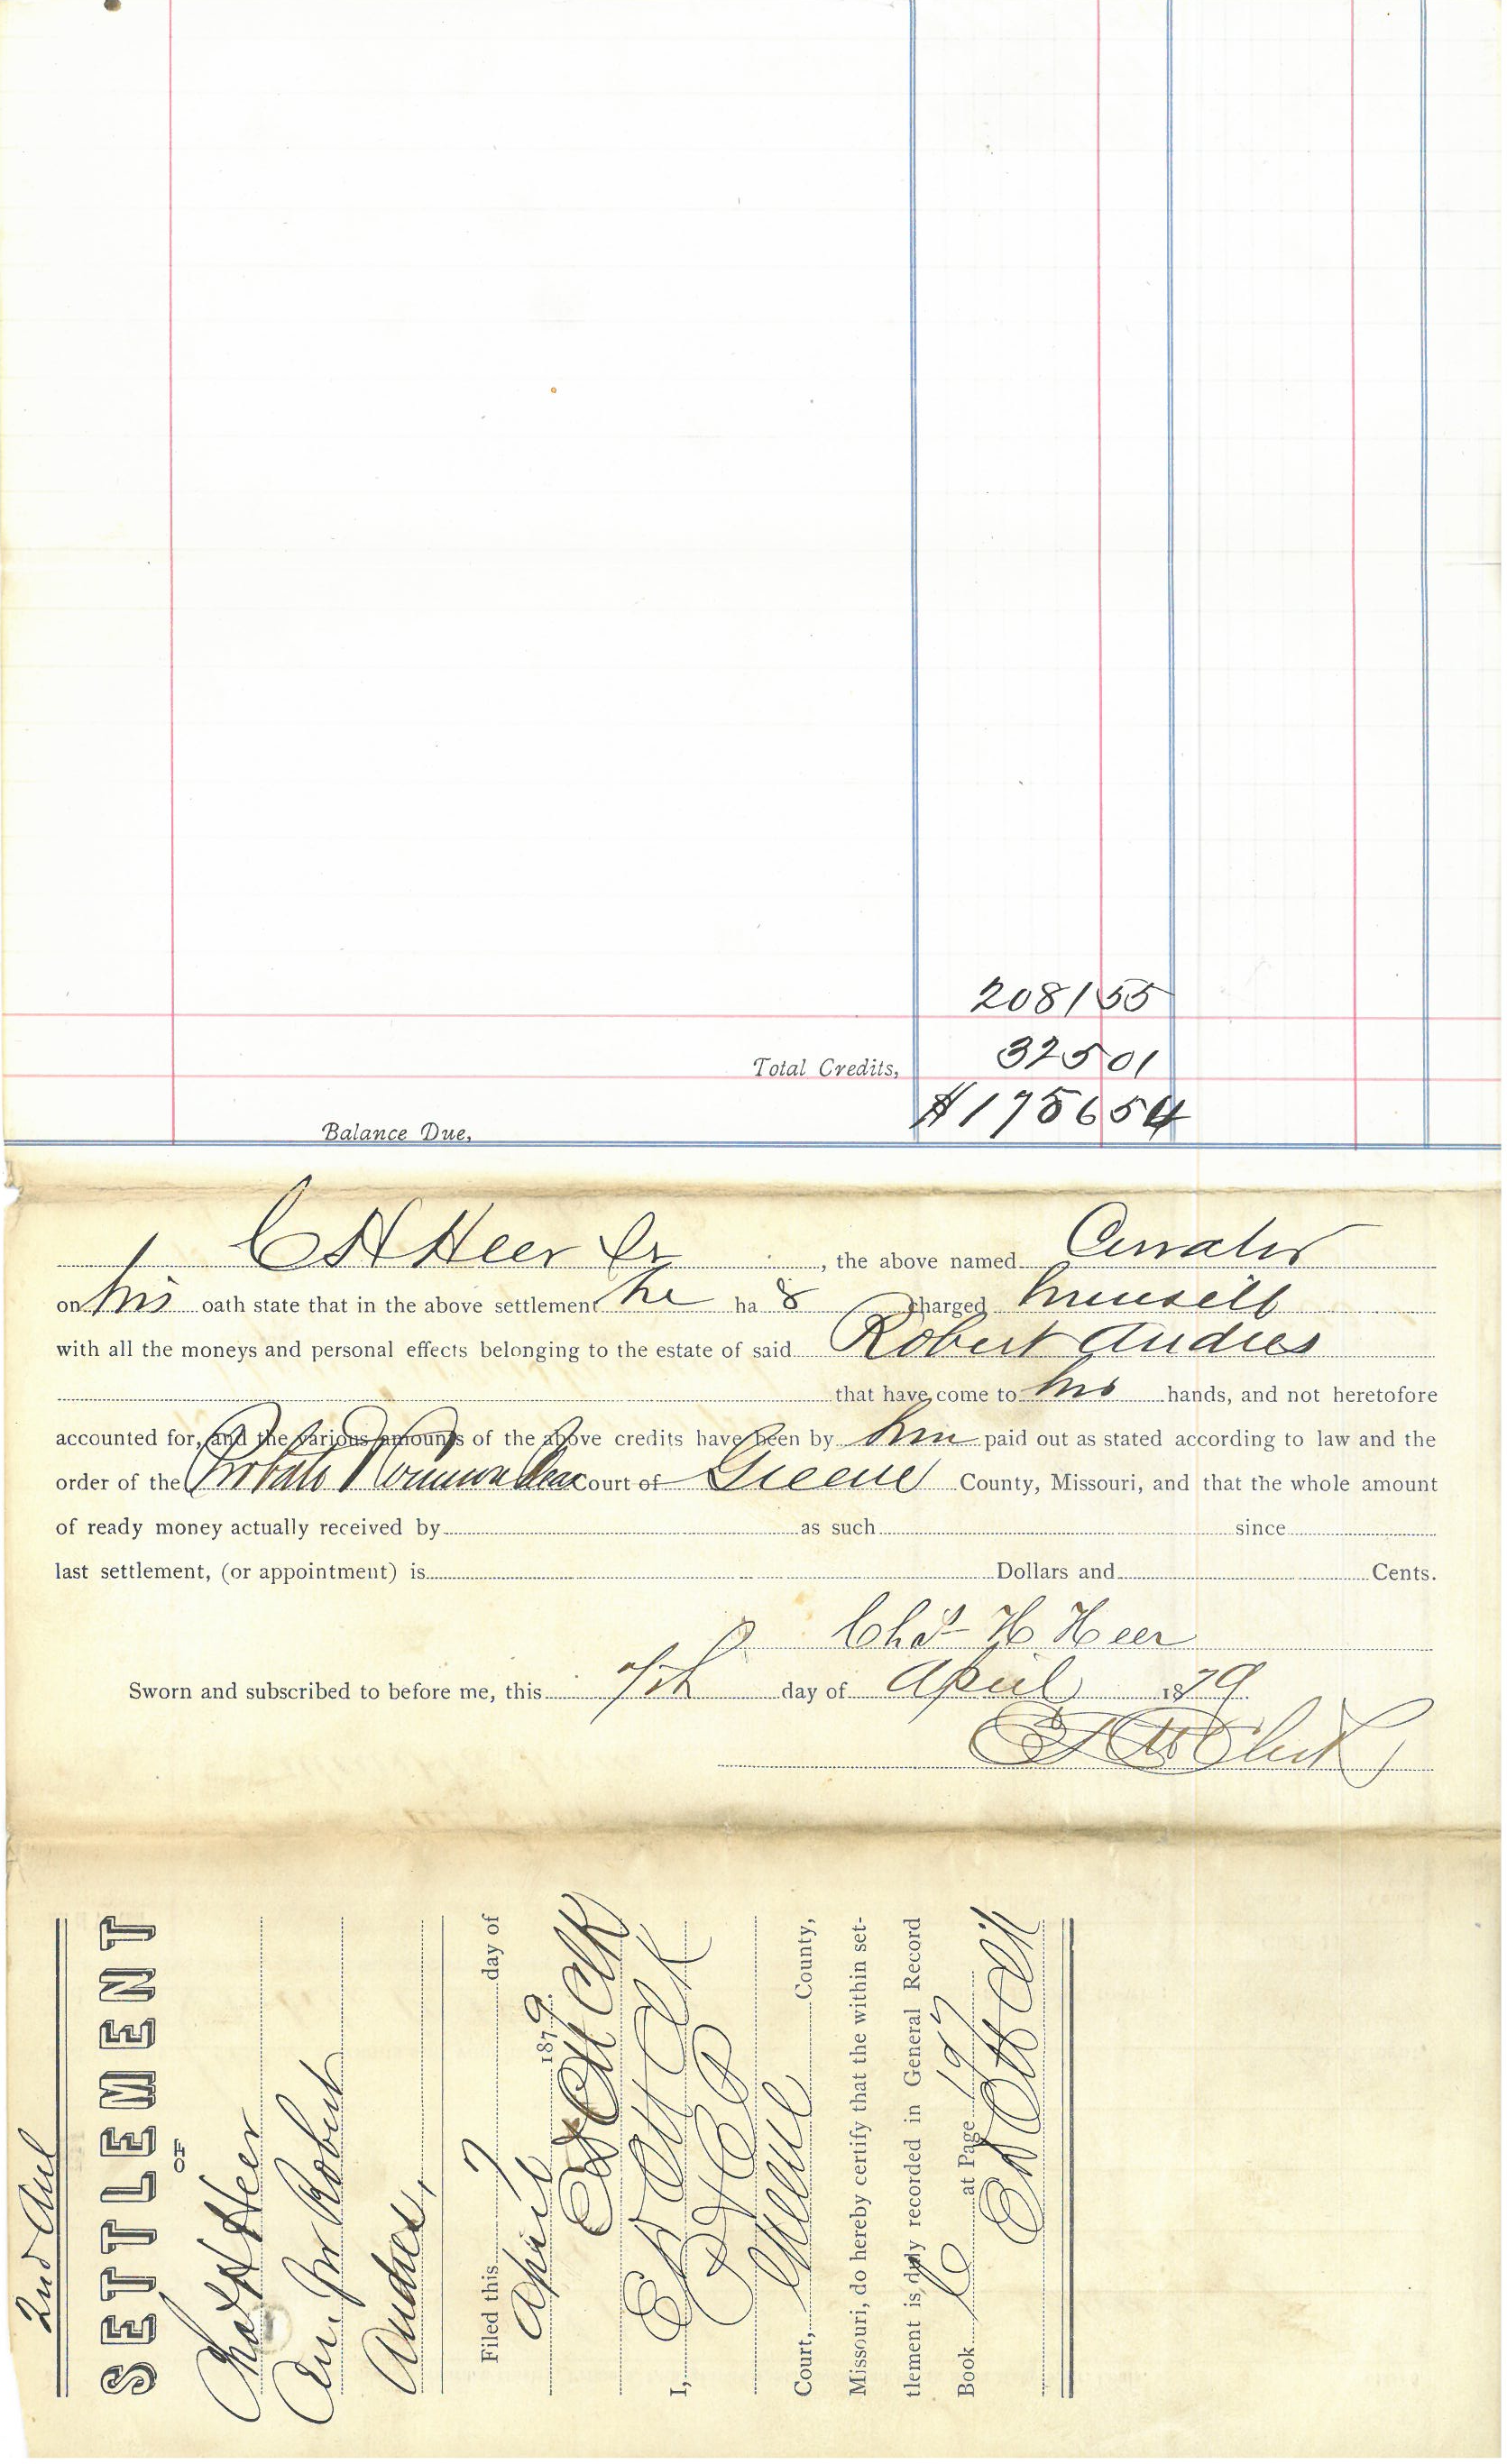 2081 55
Total Credits, 325 01
Balance Due, $1756 54
I C H Heer Cr , the above named Curator
on his oath state that in the above settlement he ha s charged himself
with all the moneys and personal effects belonging to the estate of said Robert Andres
that have come to his hands, and not heretofore
accounted for, and the various amounts of the above credits have been by him paid out as stated according to law and the
order of the Probate & Common Pleas Court of Greene County, Missouri, and that the whole amount
of ready money actually received by as such since
last settlement, (or appointment) is Dollars and Cents.
Chas H Heer
Sworn and subscribed to before me, this 7th day of April 1879
Clerk
2nd Anl
SETTLEMENT
OF
Chas H Heer
Cur. for Robert
Andres,
Filed this 7 day of
April 1879.
Clk
I, Clk
P & C P
Court, Greene County,
Missouri, do hereby certify that the within set-
tlement is duly recorded in General Record
Book C at Page 197
Clk